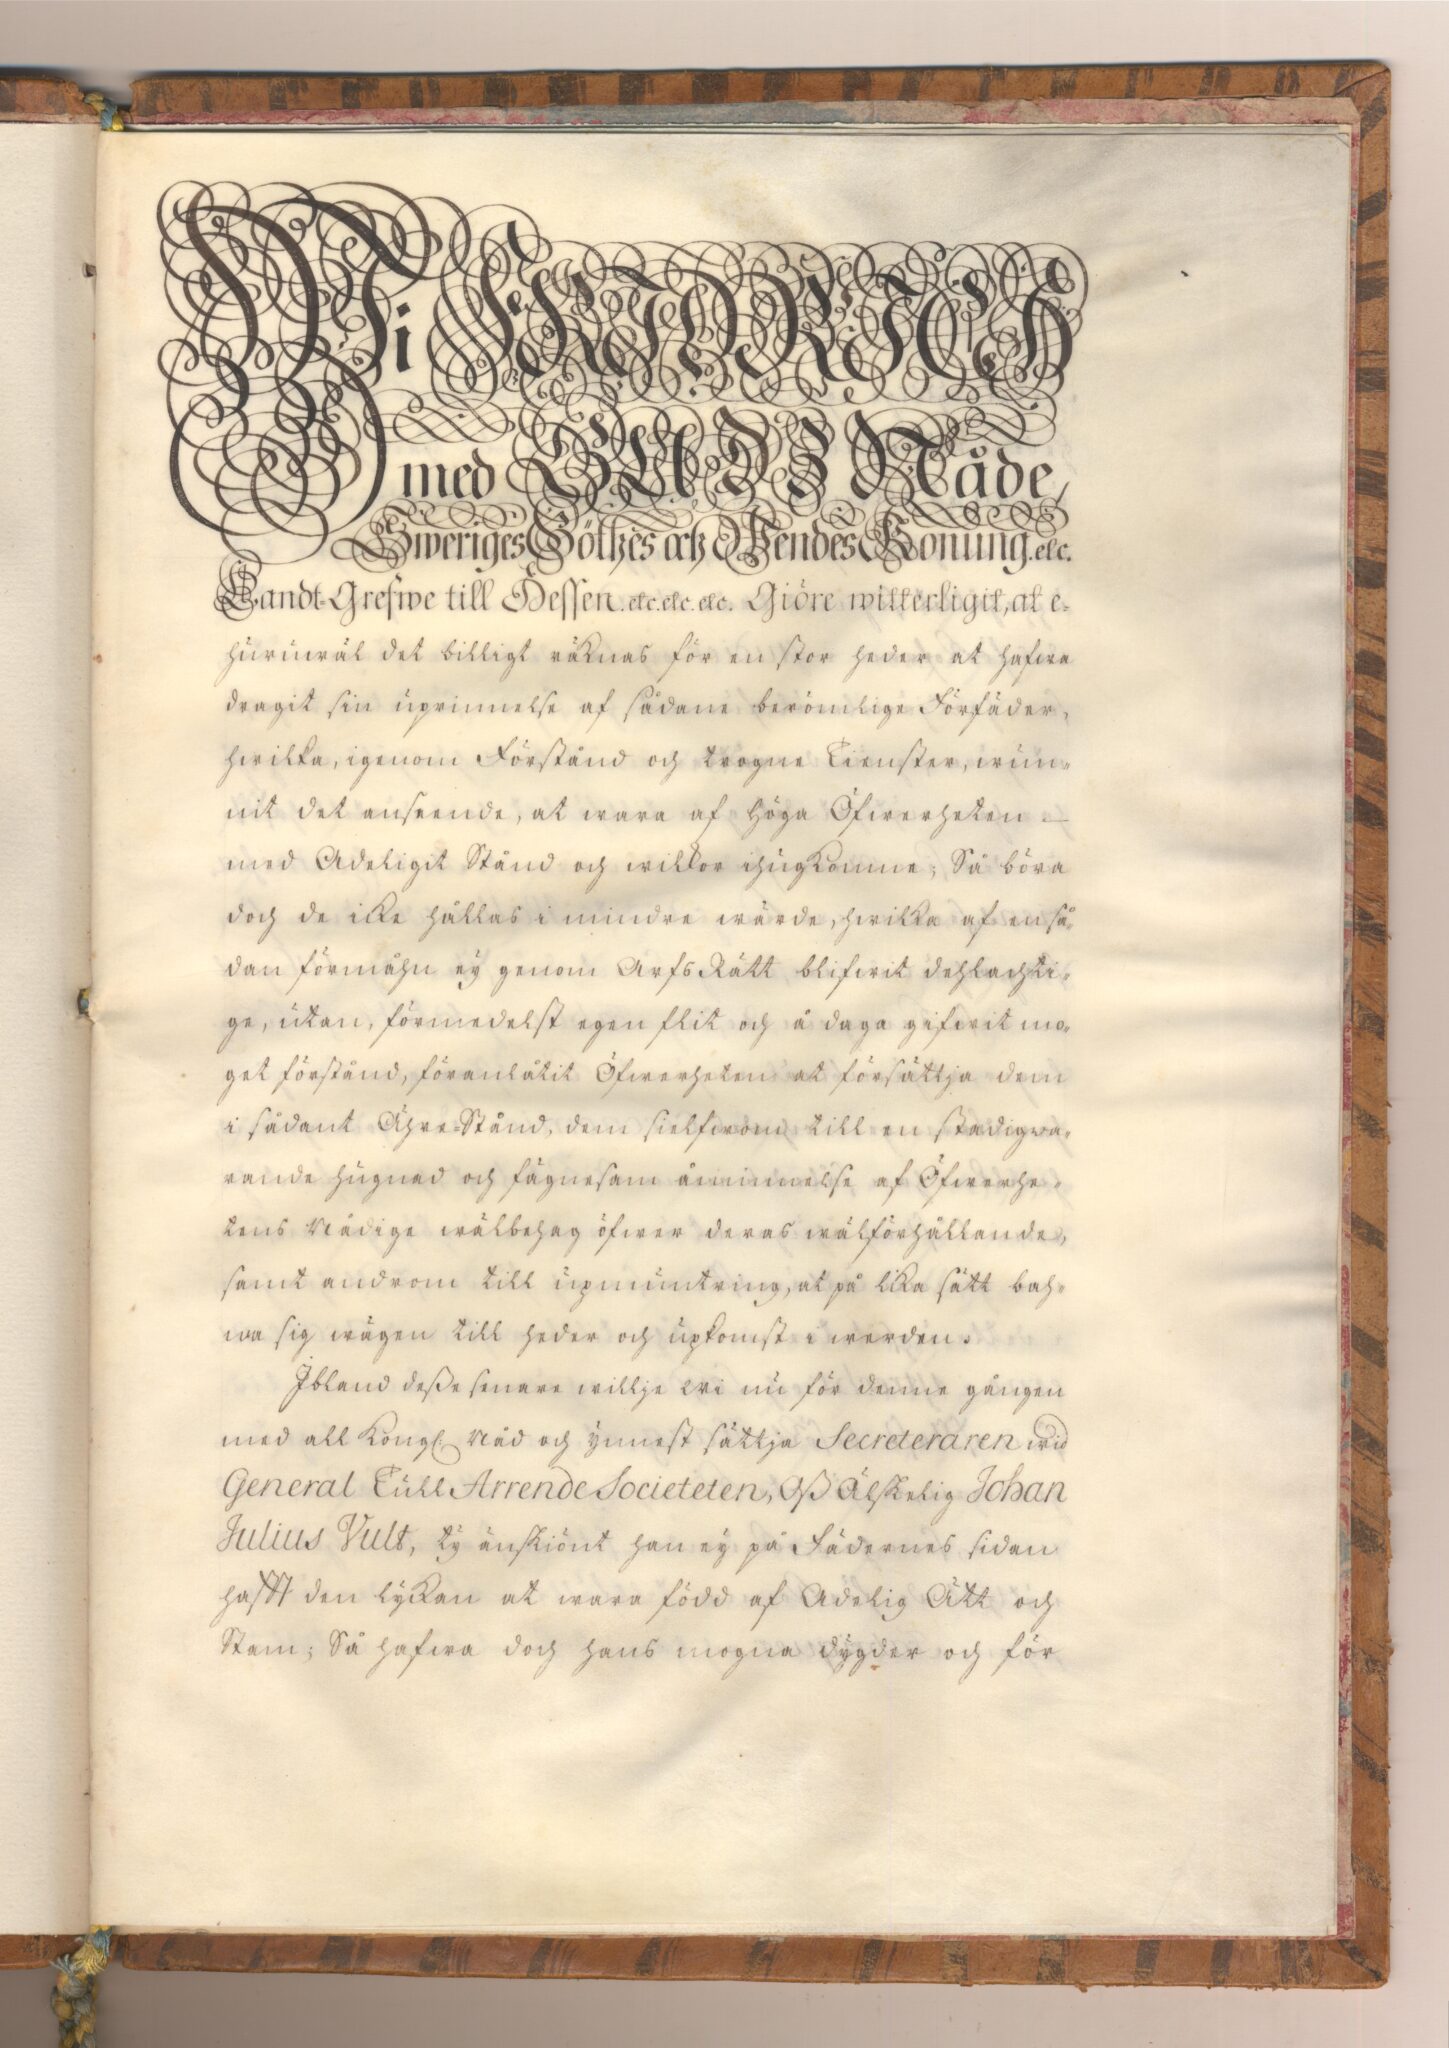 Wi FRIDRICH
med GUDZ Nåde,
Sweriges Göthes och Wendes Konung. etc.
Landt-Grefwe till Hessen. etc. etc. etc. Giöre witterligit, at e-
huruwäl det billigt räknas för en stor heder at hafwa
dragit sin uprinnelse af sådane berömlige Förfäder,
hwilka, igenom Förstånd och trogne Tienster, wun-
nit det anseende, at wara af Höga Öfwerheten
med Adeligit Stånd och wilkor ihugkomne; Så böra
doch de icke hållas i mindre wärde, hwilka af en så-
dan förmåhn ey genom Arfs Rätt blifwit dehlachti-
ge, utan, förmedelst egen flit och å daga gifwit mo-
get förstånd, föranlåtit Öfwerheten at försättja dem
i sådant Ähre-Stånd, dem sielfwom till en stadigwa-
rande hugnad och fägnesam åminnelse af Öfwerhe-
tens Nådige wälbehag öfwer deras wälförhållande,
samt androm till upmuntring, at på lika sätt bah-
na sig wägen till heder och upkomst i werden.
Ibland deße senare willje Wi nu för denne gången
med all Kongl. Nåd och ynnest sättja Secreteraren wid
General Tull Arrende Societeten, Oß Älskelig Johan
Julius Vult, ty änskiönt han ey på Fädernes sidan
hafft den lyckan at wara född af Adelig Ätt och
Stam; Så hafwa doch hans mogna dygder och för